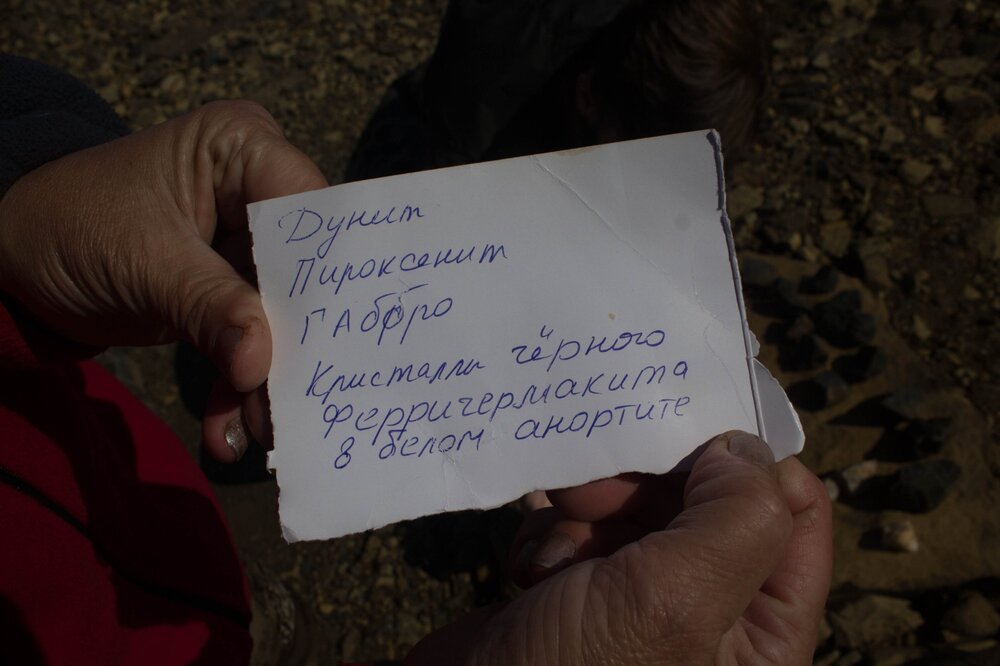 Дунит
Пироксенит
ГАббро
Кристаллы чёрного
Ферричермакита
в белом анортите